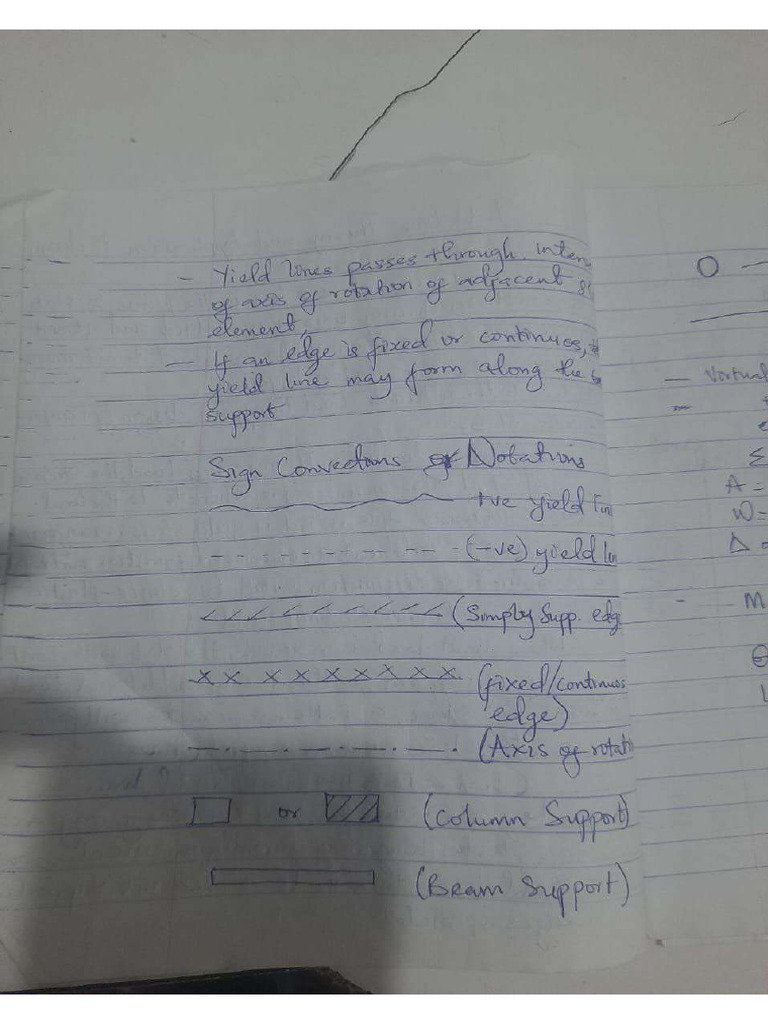 - Yield lines passes through inten
of axis of rotation of adjacent sl
element,
- If an edge is fixed or continues,
yield line may form along the
support
Sign Convections of Notations
+ve yield lin
(-ve) yield li
(Simply Supp. edg
x x x x x x x x x (fixed/continues
edge)
(Axis of rotati
or (Column Support)
(Beam Support)
- Virtual
Σ
A =
W=
Δ =
- M
θ